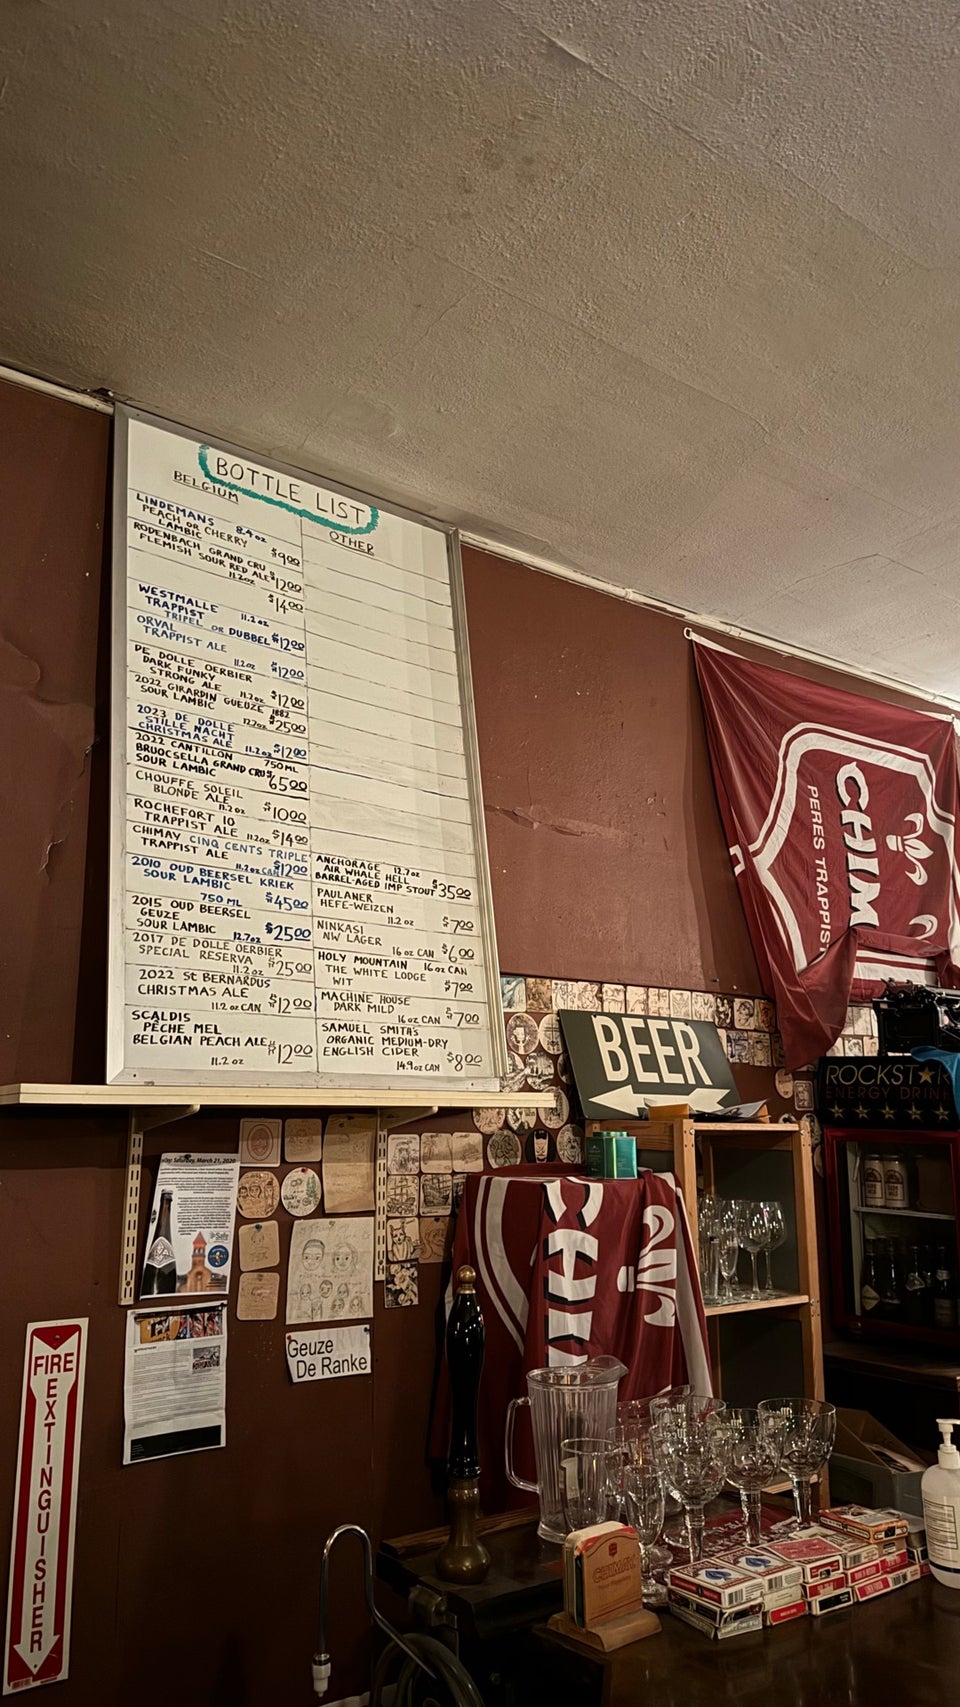 BOTTLE LIST
BELGIUM
LINDEMANS 8.4 oz
PEACH OR CHERRY
LAMBIC $9.00
RODENBACH GRAND CRU
FLEMISH SOUR RED ALE $12.00
11.2oz
$14.00
WESTMALLE 11.2 oz
TRAPPIST
TRIPEL OR DUBBEL $12.00
ORVAL
TRAPPIST ALE
11.2oz $12.00
DE DOLLE OERBIER
DARK FUNKY
STRONG ALE 11.2oz $12.00
2022 GIRARDIN GUEUZE 1882
SOUR LAMBIC 12.7oz $25.00
2023 DE DOLLE
STILLE NACHT
CHRISTMAS ALE 11.2oz $12.00
2022 CANTILLON 750ML
BRUOCSELLA GRAND CRU
SOUR LAMBIC $65.00
CHOUFFE SOLEIL
BLONDE ALE
11.2oz $10.00
ROCHEFORT 10
TRAPPIST ALE 11.2oz $14.00
CHIMAY CINQ CENTS TRIPLE
TRAPPIST ALE 11.2oz CAN $12.00
2010 OUD BEERSEL KRIEK
SOUR LAMBIC
750 ML $45.00
2015 OUD BEERSEL
GEUZE
SOUR LAMBIC 12.7oz $25.00
2017 DE DOLLE OERBIER
SPECIAL RESERVA
11.2oz $25.00
2022 St BERNARDUS
CHRISTMAS ALE
11.2 oz CAN $12.00
SCALDIS
PÊCHE MEL
BELGIAN PEACH ALE $12.00
11.2 oz
OTHER
ANCHORAGE 12.7oz
AIR WHALE HELL
BARREL-AGED IMP STOUT $35.00
PAULANER
HEFE-WEIZEN
11.2 oz $7.00
NINKASI
NW LAGER
16 oz CAN $6.00
HOLY MOUNTAIN 16 oz CAN
THE WHITE LODGE
WIT $7.00
MACHINE HOUSE
DARK MILD
16 oz CAN $7.00
SAMUEL SMITH's
ORGANIC MEDIUM-DRY
ENGLISH CIDER
14.9oz CAN $8.00
CHIM
PERES TRAPPIS
BEER
ROCKSTAR
ENERGY DRINK
Saturday, March 21, 2020
Geuze
De Ranke
CHI
FIRE EXTINGUISHER
CHIMAY